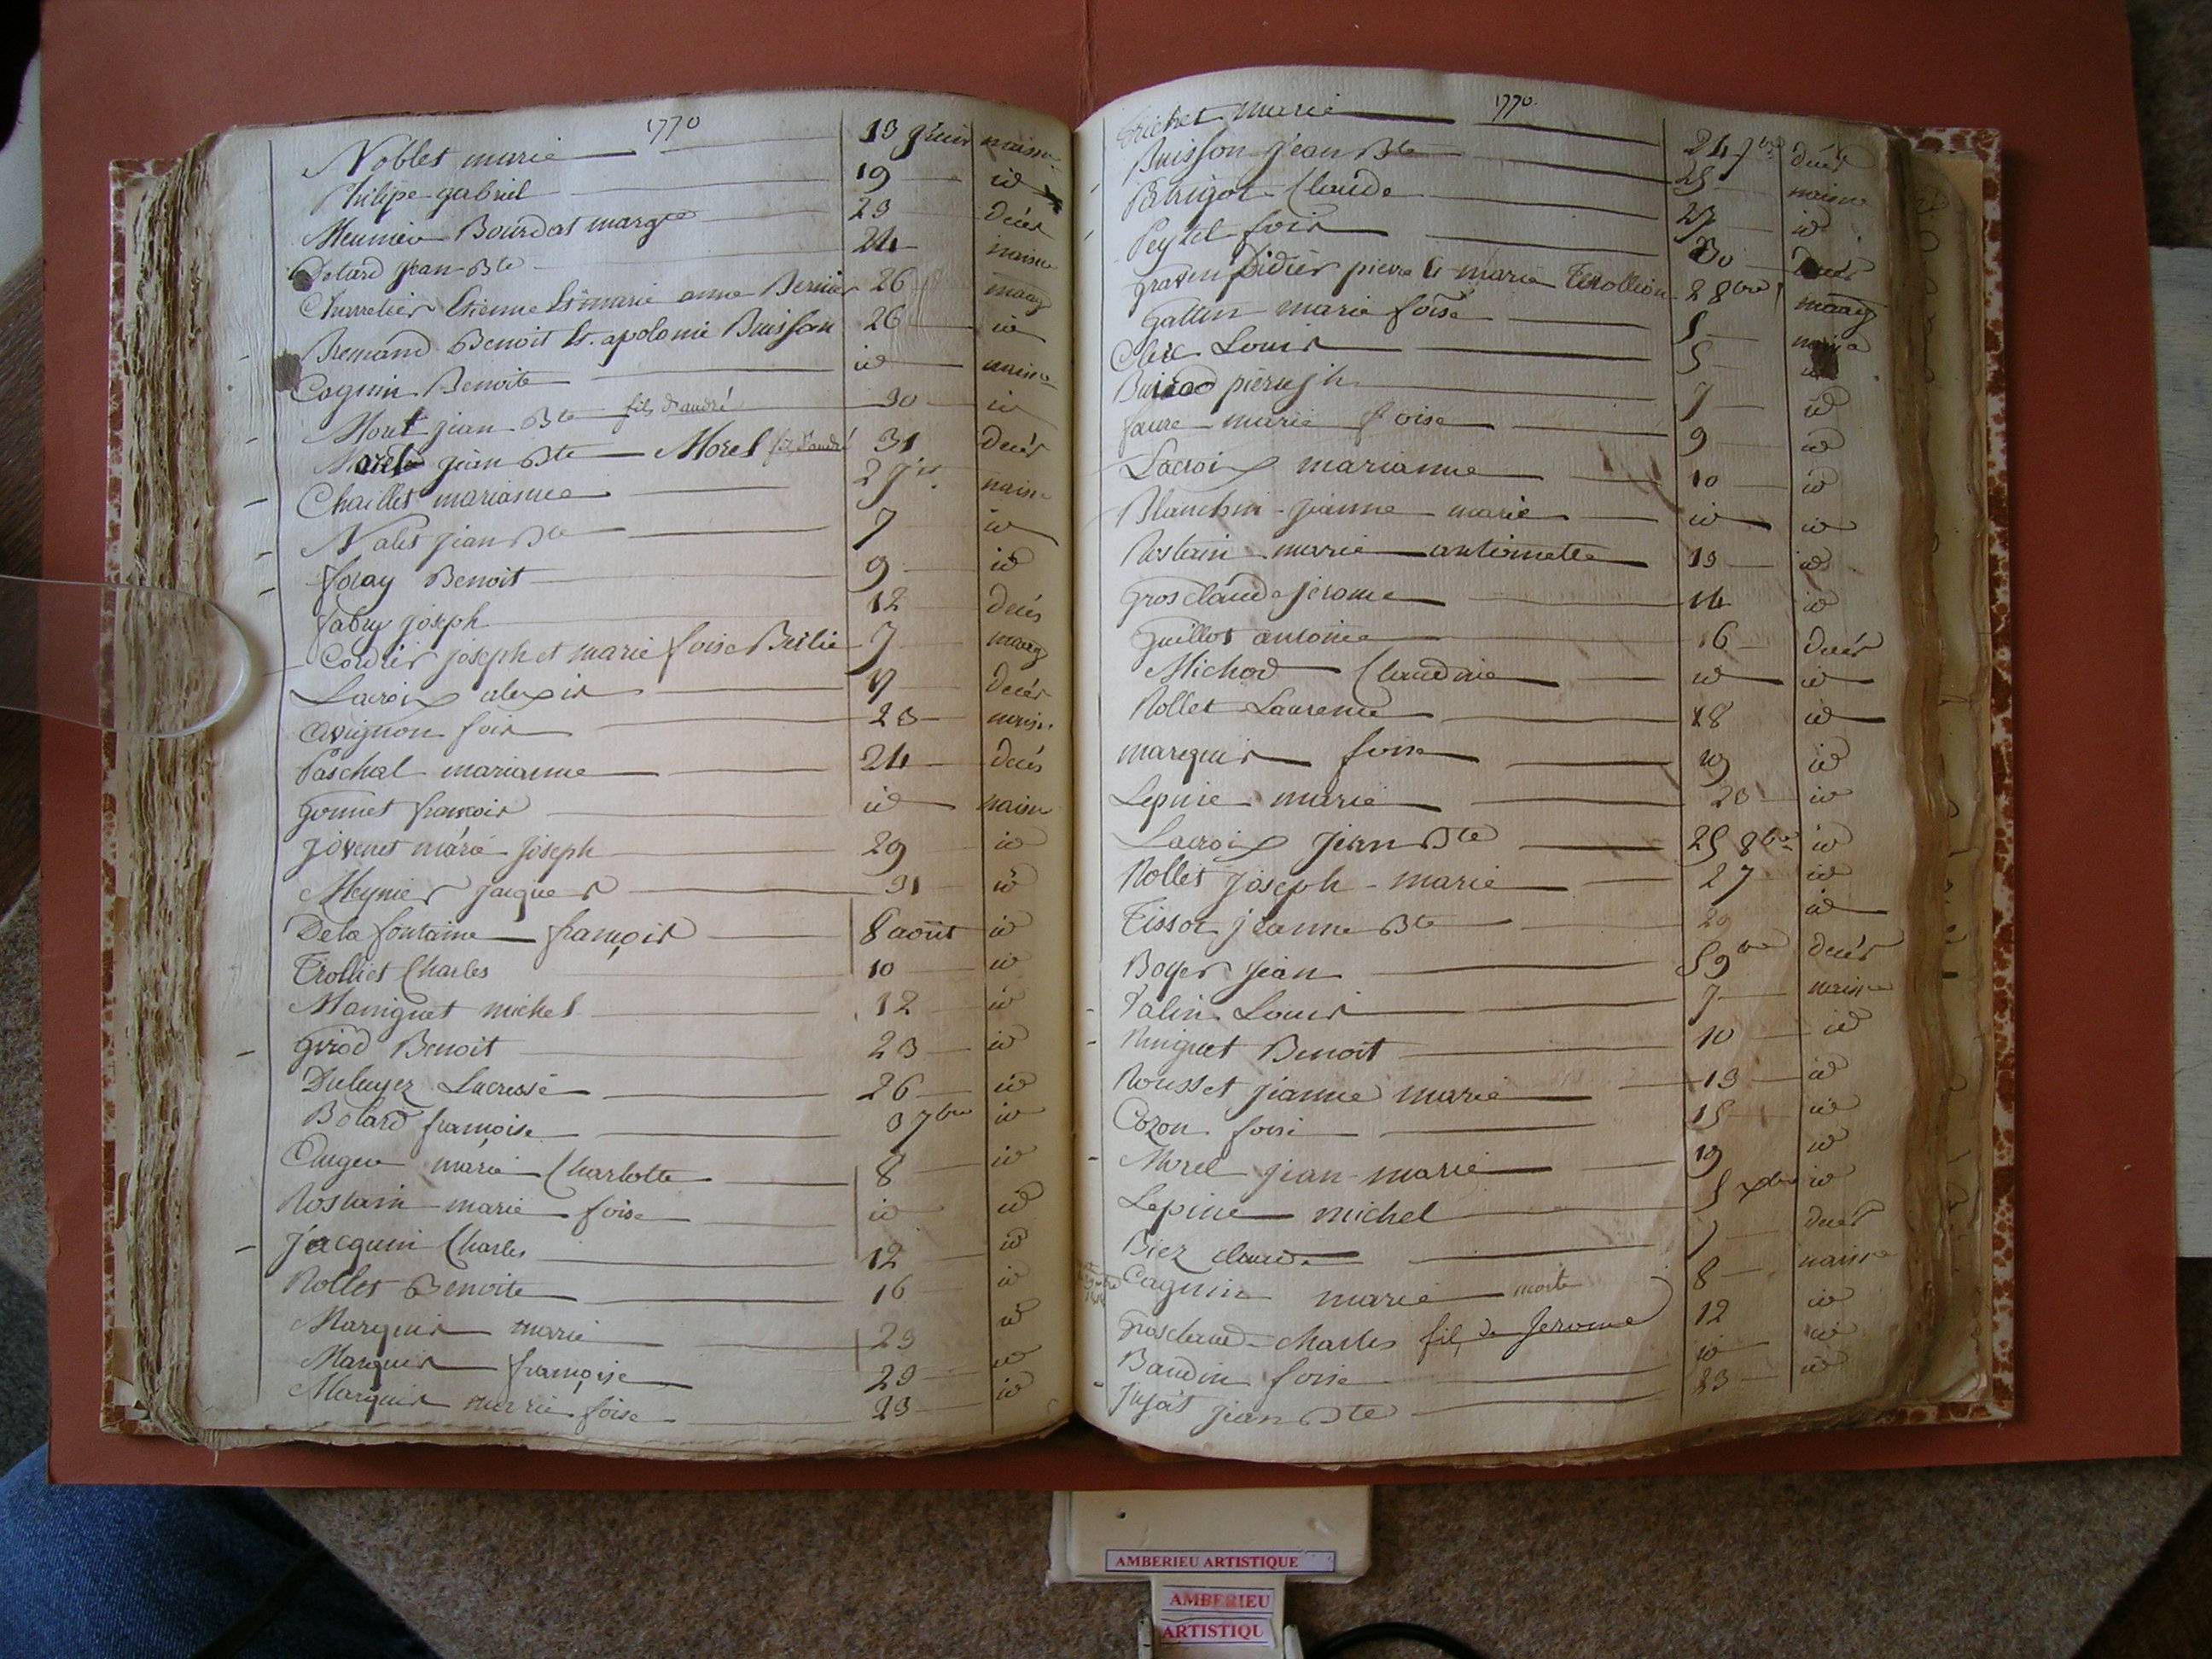 1770
Noblet marie 13 naiss
Philipe gabriel 19 id
Meunier Bourdat margte 23 decés
Dotard jean Bte 24 naisse
Charretier Etienne Et marie anne Bernier 26 mariag
Remand Benoit Et apolonie Buisson 26 id
Cognin Benoite id naisse
Mout jean Bte fils d'andré 30 id
jean Bte Morel fils d'andré 31 decés
Chaillet marianne 2 naiss
Valet jean Bte 7 id
foray Benoit 9 id
fabry joseph 12 decés
Cordier joseph et marie foise 7 mariag
Lacroix alexis 17 decés
avignon fois 23 naiss
Paschal marianne 24 decés
gonnet françois id naiss
jovenet marie joseph 29 id
Meynier jacques 31 id
Dela fontaine françois 8 août id
Trolliet Charles 10 id
Maniguet michel 12 id
girod Benoit 23 id
Lucresse 26 id
Botard françoise 3 7bre id
marie Charlotte 8 id
Rostain marie foise id id
jacquin Charles 12 id
Rollet Benoite 16 id
Marquis marie 23 id
Marquis françoise 23 id
Marquis marie foise 23 id
1770
marie 24 7bre decés
Buisson jean Bte 25 naisse
Claude 27 id
Peytel fois 30 decés
Didier pierre Et marie 2 8bre mariag
gallin marie foise 5
Clerc Louis 5
pierre jh 7 id
faure marie foise 9 id
Lacroix marianne 10 id
Blanchin jeanne marie id id
Rostain marie antoinette 13 id
grosclaude jerome 14 id
guillot antoine 16 decés
Michod Claudine id id
Rollet Laurence 18 id
marquis foise 19 id
Lepine marie 23 id
Lacroix jean Bte 25 8bre id
Rollet joseph marie 27 id
Tissot jeanne Bte 29 id
Boyer jean 5 9bre decés
Palin Louis 7 naisse
Ringuet Benoit 10 id
Rousset jeanne marie 13 id
Cozon foise 15 id
Morel jean marie 19 id
Lepine michel 5 xbre id
Biez claude 7 decés
Cagnin marie morte 8 naisse
grosclaude charles fils de Jerome 12 id
Baudin foise id id
Jujat jean Bte 23 id
AMBERIEU ARTISTIQUE
AMBERIEU
ARTISTIQU